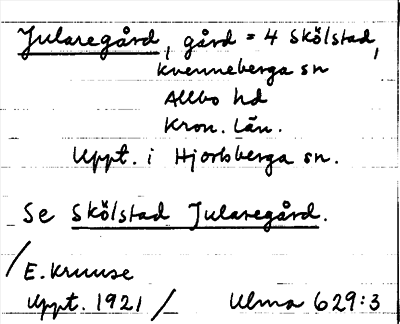 Jularegård, gård = 4 Skölstad,
Kvenneberga sn
Allbo hd
Kron. län.
Uppt. i Hjortsberga sn.
Se Skölstad Jularegård.
/
E. Kruuse
Uppt. 1921 / Ulma 629:3